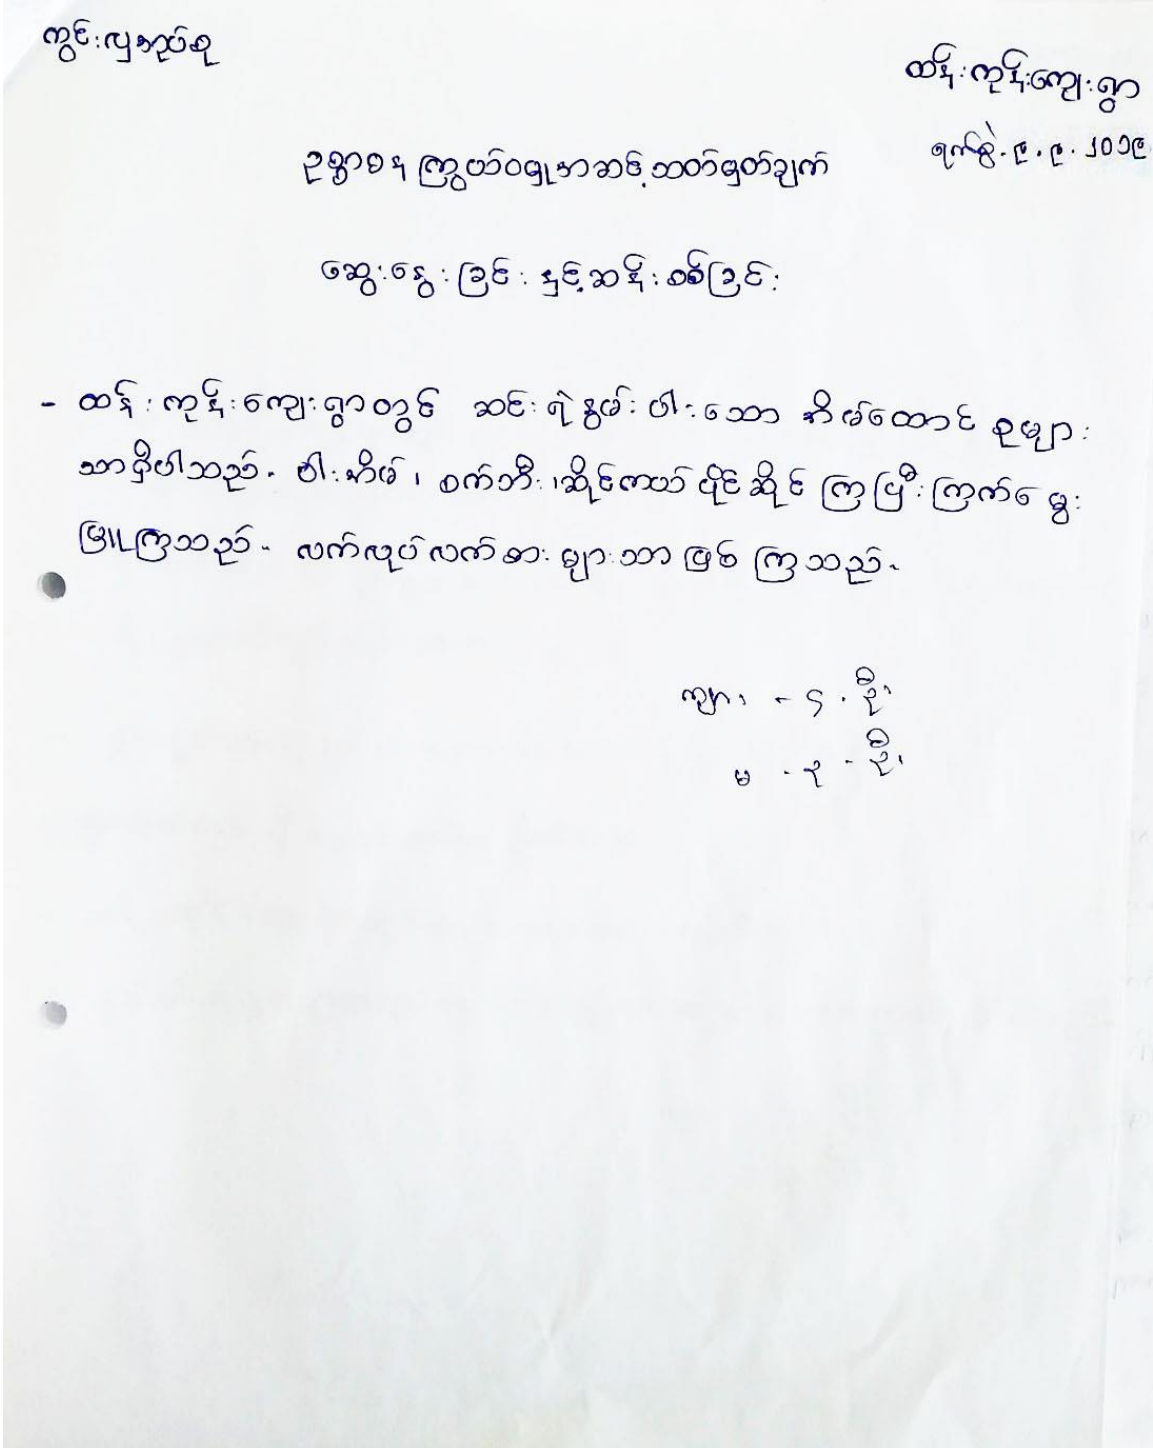 ကွင်းလှအုပ်စု
ထန်းကုန်းကျေးရွာ
ရက်စွဲ. ၉. ၉. ၂၀၁၉
ဥစ္စာဓန ကြွယ်ဝမှုအဆင့်သတ်မှတ်ချက်
ဆွေးနွေးခြင်း နှင့်ဆန်းစစ်ခြင်း
- ထန်းကုန်းကျေးရွာတွင် ဆင်းရဲနွမ်းပါးသော အိမ်ထောင်စုများ
သာရှိပါသည်. ဝါးအိမ်၊ စက်ဘီး၊ဆိုင်ကယ် ပိုင်ဆိုင်ကြပြီးကြက်မွေး
မြူကြသည်. လက်လုပ်လက်စားများသာဖြစ်ကြသည်.
ကျား - ၄. ဦး
မ - ၃ - ဦး